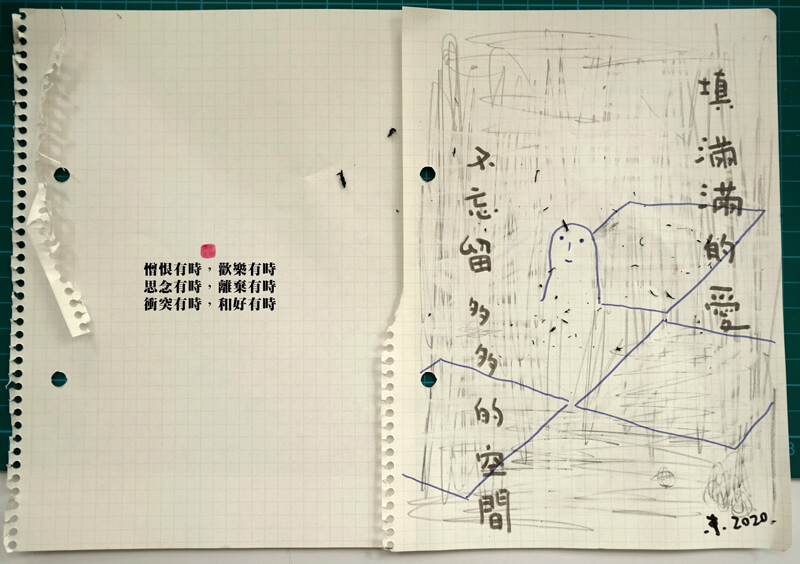 憎恨有時，歡樂有時
思念有時，離棄有時
衝突有時，和好有時
填滿滿的愛
不忘留多多的空間
2020.